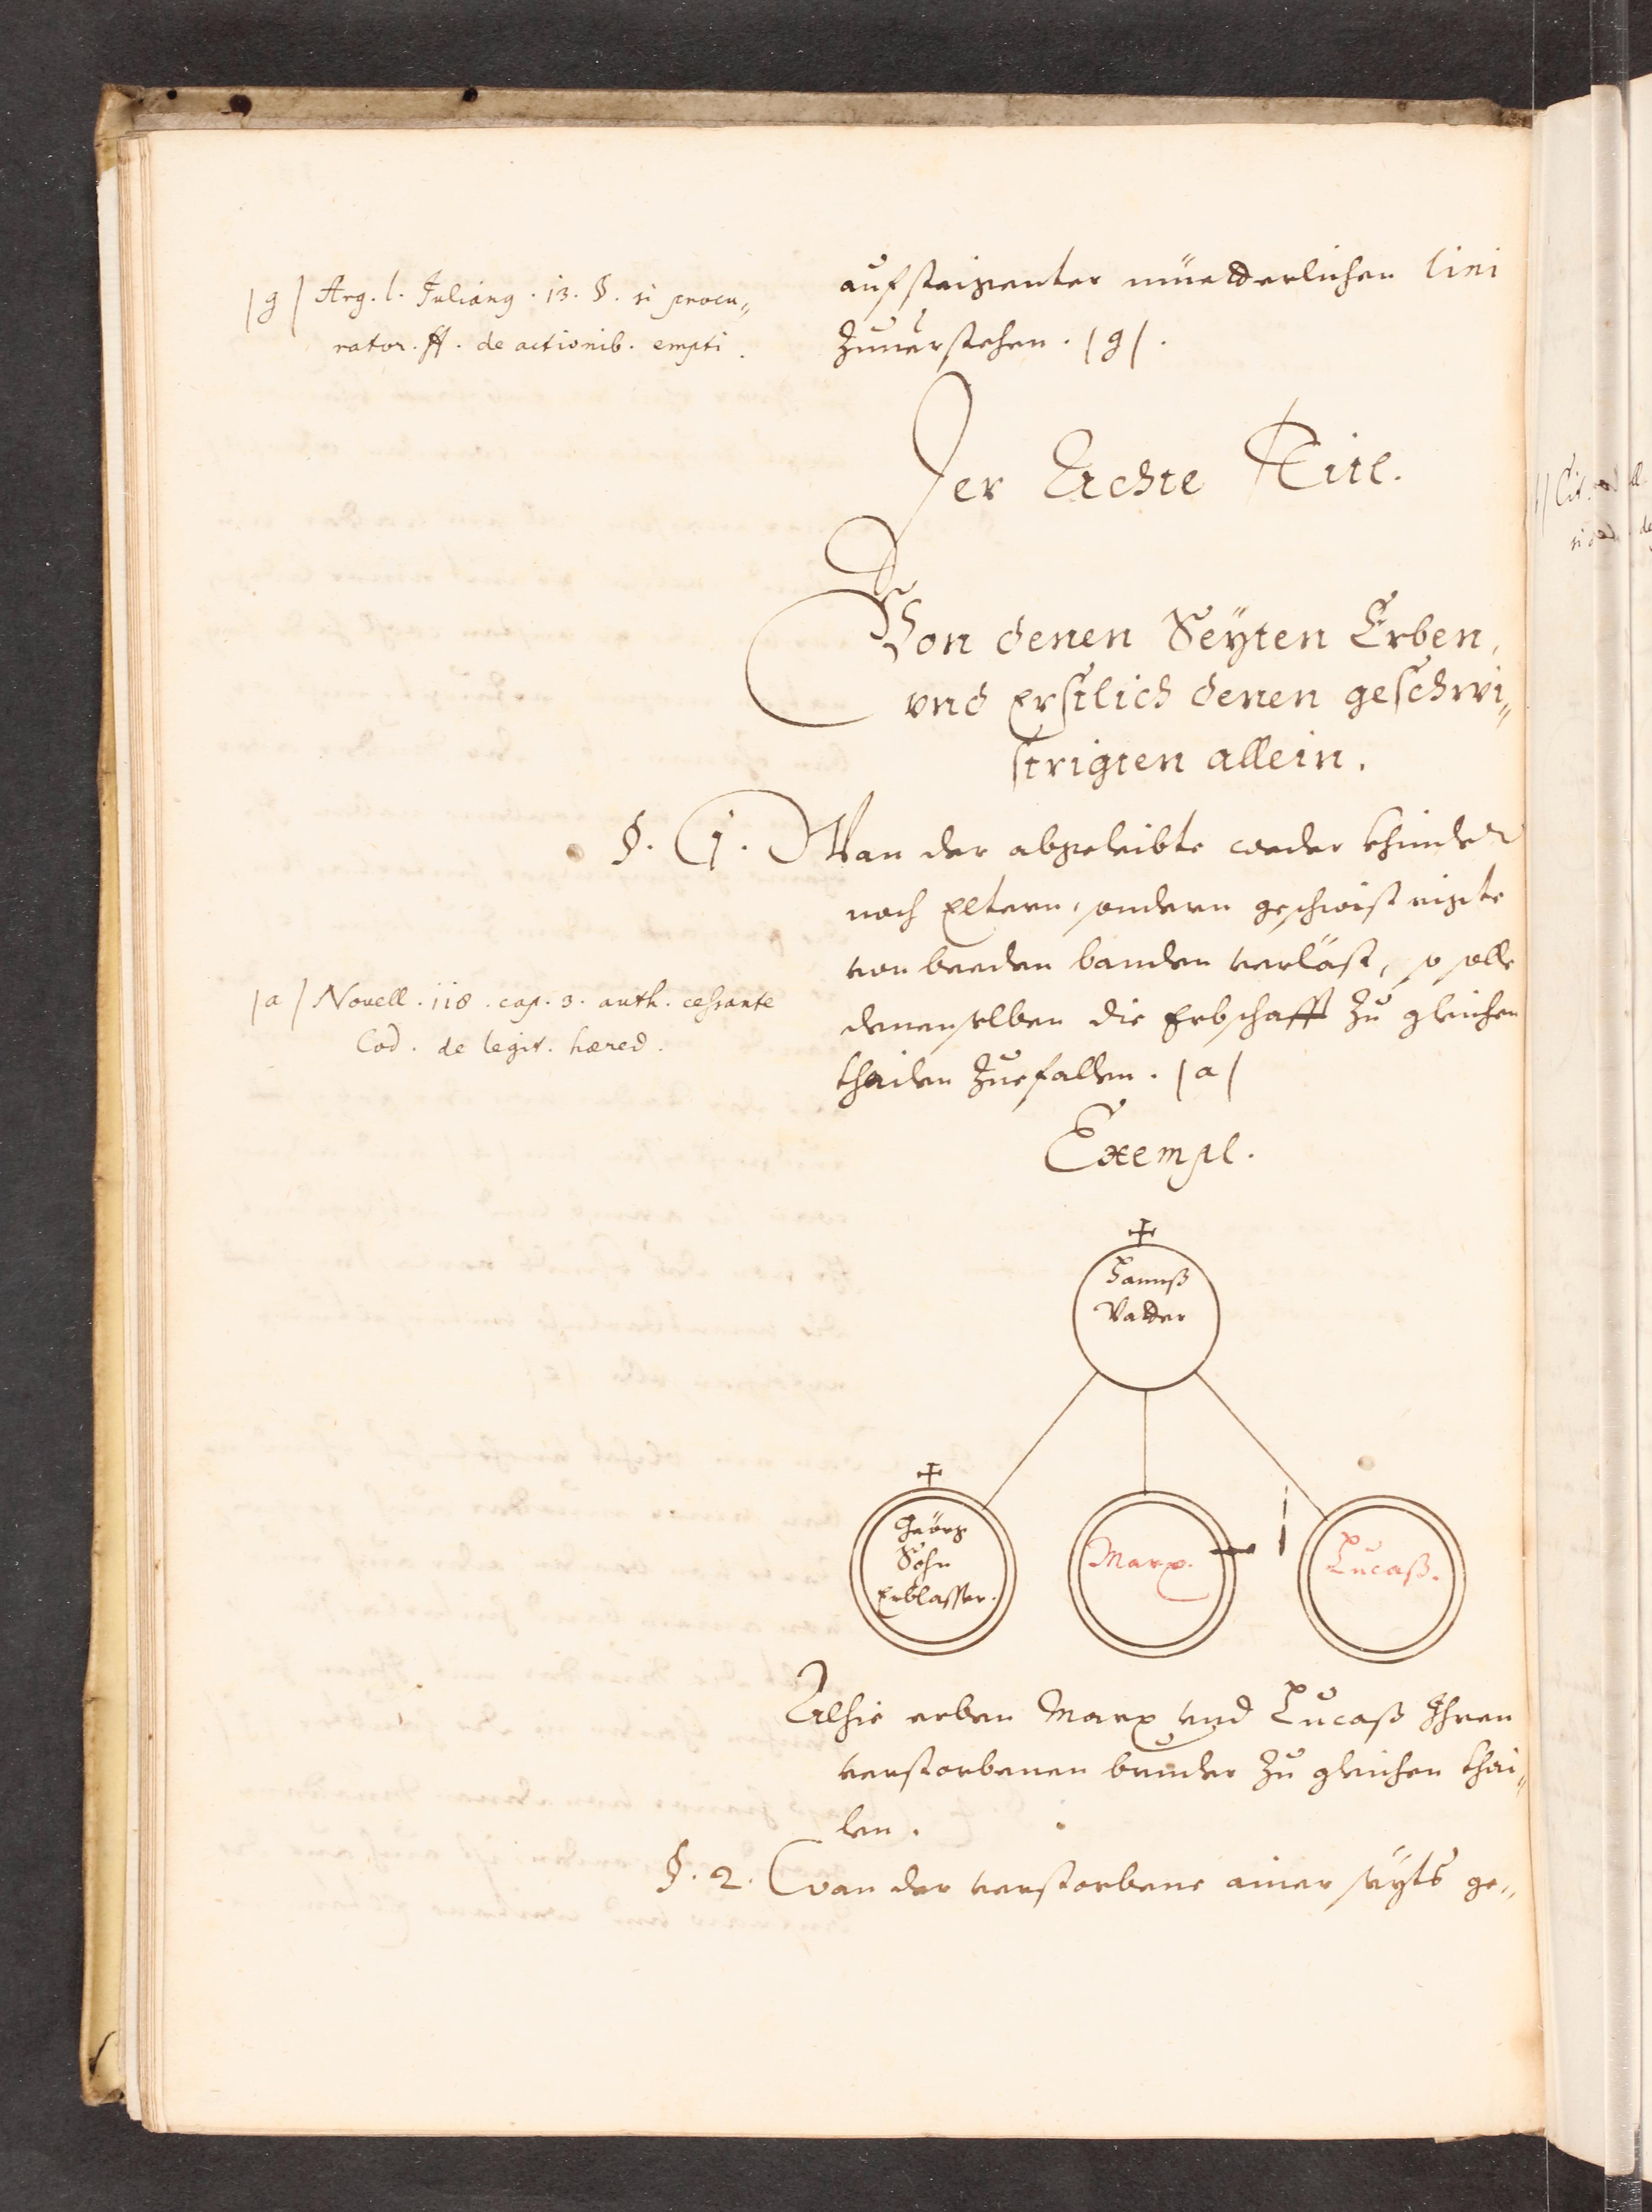 aufsteigenter müetterlichen lini
zuuerstehen. |g|.
|g| Arg. l. Julianq. 13. §. si procu„
rator. ff. de actionib. empti.
Der Achte Titl.
Von denen Seyten Erben,
vnd Erstlich denen geschwi„
strigten allein.
§. 1. Wan der abgeleibte weder khinder
noch Eltern, sondern geschwistrigte
von beeden banden verläst, so solle
denenselben die Erbschafft zu gleichen
thailen zuefallen. |a|
|a| Nouell. 118. cap. 3. auth. cessante
Cod. de legit. hæred.
Exempl.
Hannß
Vatter
Geörg
Sohn
Erblasser.
Marx.
Lucaß.
Alhie erben Marx vnd Lucaß Ihren
verstorbenen brueder zu gleichen thai„
len.
§. 2. Wan der verstorbene ainer seyts ge„